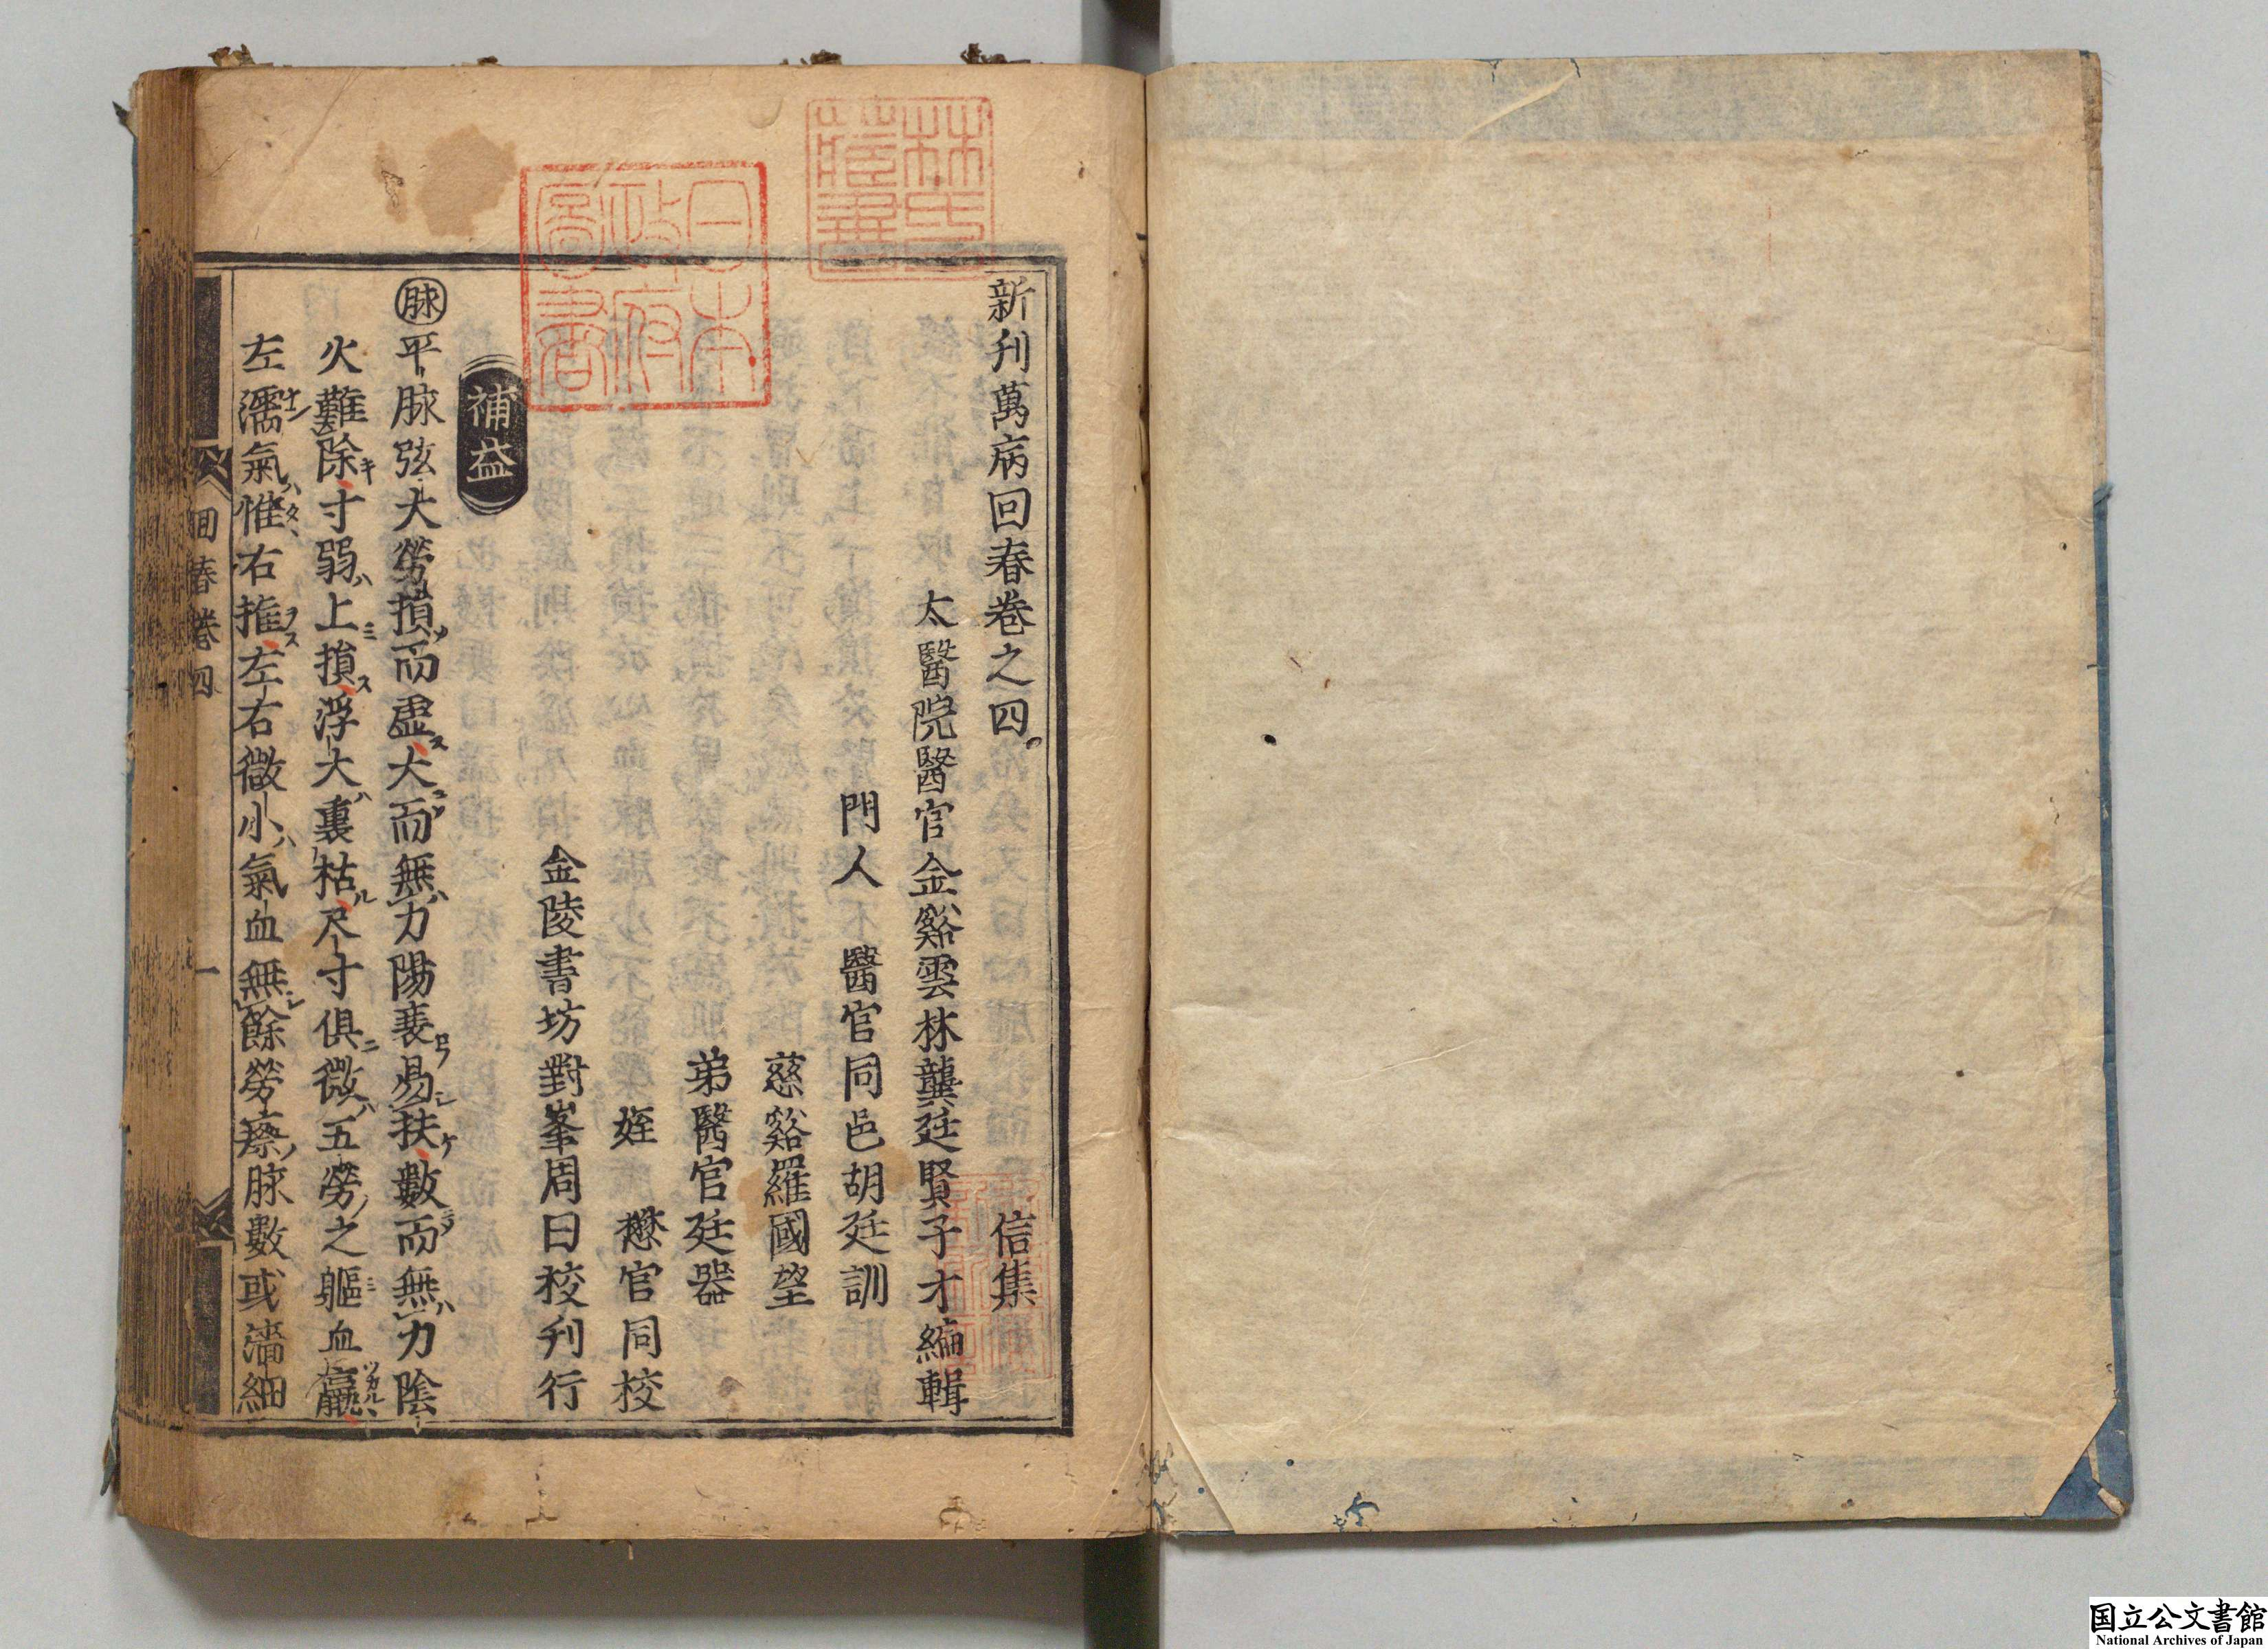 新刊萬病回春卷之四　信集
太醫院醫官金谿雲林龔廷賢子才編輯
門人　醫官同邑胡廷訓
慈谿羅國望
弟醫官廷器
姪　懋官同校
金陵書坊對峯周曰校刊行
補益
脉平脉弦大勞損而虛大而無力陽衰易扶數而無力陰
火難除寸弱上損浮大裏枯尺寸俱微五勞之軀血羸
左濡氣惟右推左右微小氣血無餘勞瘵脉數或濇細
回春卷四　一
林氏藏書
日本政府圖書
国立公文書館
National Archives of Japan